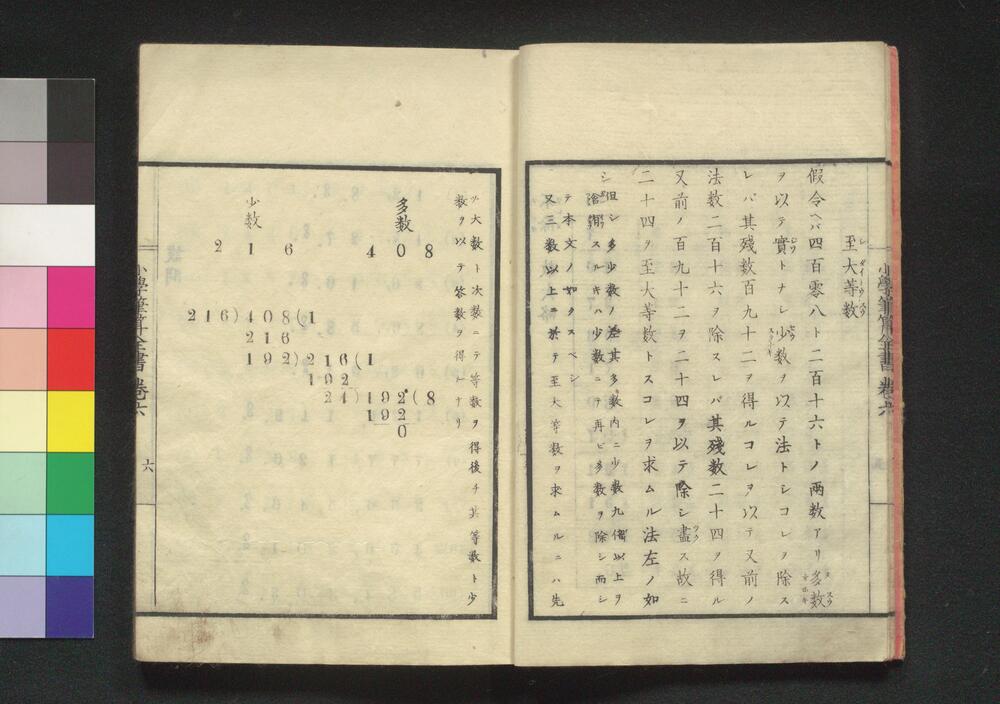 至大等数
假令ヘバ四百零八ト二百十六トノ兩数アリ多数
ヲ以テ實トナシ少数ヲ以テ法トシコレヲ除ス
レバ其残数百九十二ヲ得ルコレヲ以テ又前ノ
法数二百十六ヲ除スレバ其残数二十四ヲ得ル
又前ノ百九十二ヲ二十四ヲ以テ除シ盡ス故ニ
二十四ヲ至大等数トスコレヲ求ムル法左ノ如
シ
但シ多少数ノ差其多数内ニ少数九倍以上ヲ
スルキハ少数ニテ再ビ多数ヲ除シ而シ
テ本文ノ如クスベシ
又三数以上ニ於テ至大等数ヲ求ムルニハ先
ヅ大数ト次数ニテ等数ヲ得後チ其等数ト少
数ヲ以テ等数ヲ得ルナリ
多数
408
少数
216
216)408(1
216
192)216(1
192
24)192(8
192
0
小學筆算全書 卷六
六
小學筆算全書 卷六